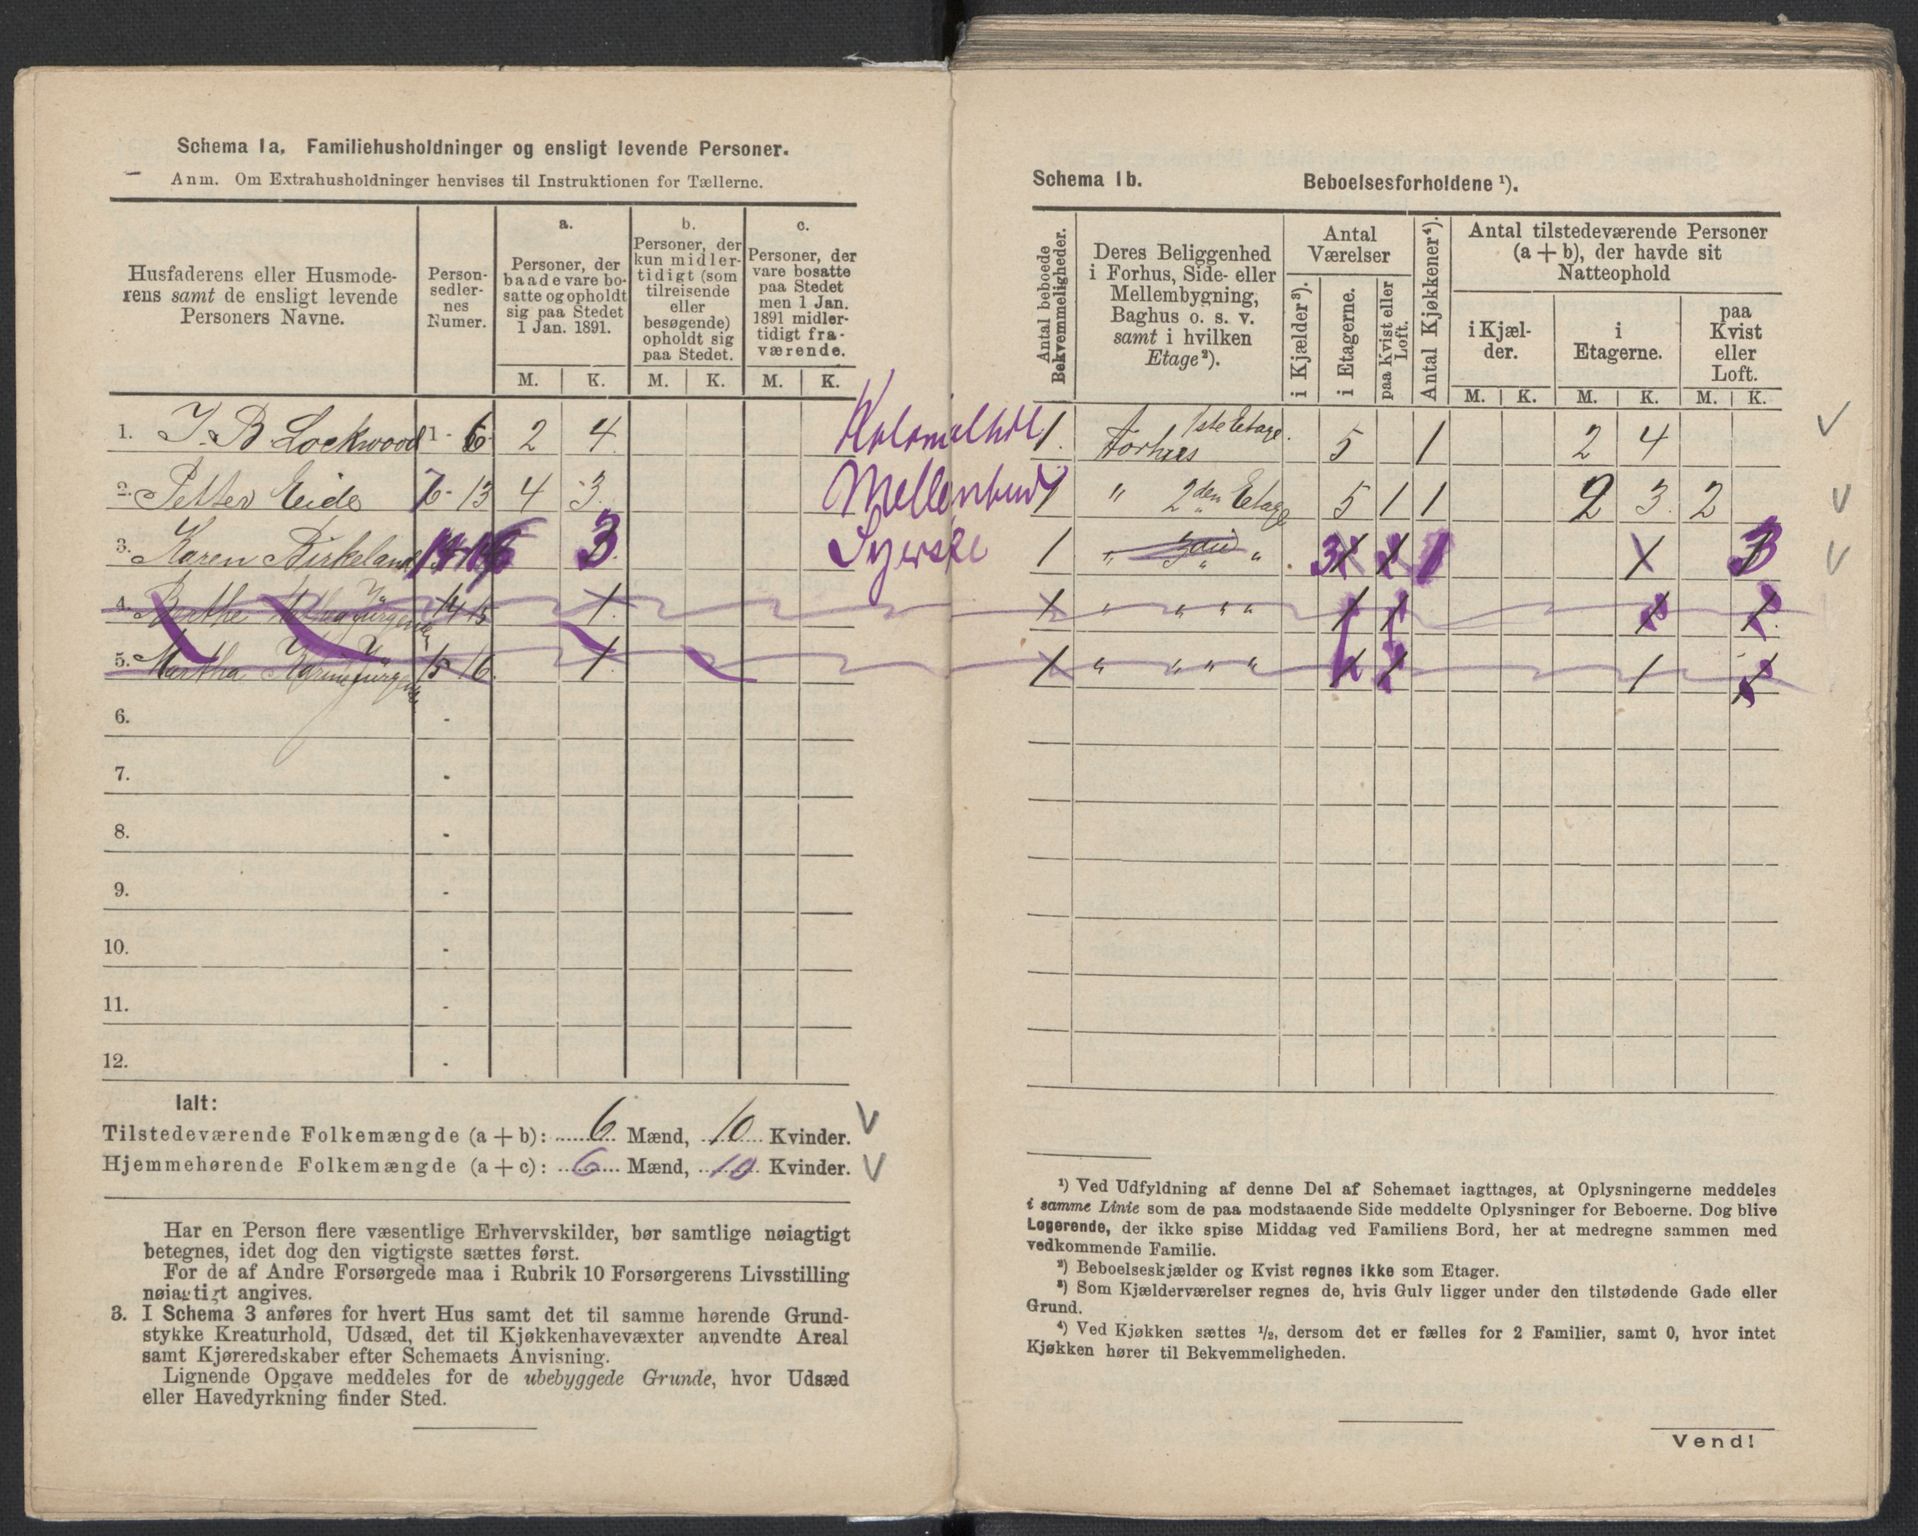 Schema 1a. Familiehusholdninger og ensligt levende Personer.
Anm. Om Extrahusholdninger henvises til Instruktionen for Tællerne.
Husfaderens eller Husmoderens samt de ensligt levende Personers Navne.
Personsedlernes Numer.
a.
Personer, der baade vare bosatte og opholdt sig paa Stedet 1 Jan. 1891.
b.
Personer, der kun midlertidigt (som tilreisende eller besøgende) opholdt sig paa Stedet.
c.
Personer, der vare bosatte paa Stedet men 1 Jan. 1891 midlertidigt fraværende.
M. K. M. K. M. K.
1. J. B. Lockwood 1 - 6 2 4 
2. Petter Eide 7 - 13 4 3
3. Karen Birkeland 14 16 3 Syerske
4. Berthe Jürgensen 14 15 1
5. Martha Karine Jürgensen 15 16 1
6. -
7. -
8. -
9. -
10. -
11. -
12. -
Ialt:
Tilstedeværende Folkemængde (a + b): 6 Mænd, 10 Kvinder.
Hjemmehørende Folkemængde (a + c): 6 Mænd, 10 Kvinder.
Har en Person flere væsentlige Erhvervskilder, bør samtlige nøiagtigt
betegnes, idet dog den vigtigste sættes først.
For de af Andre Forsørgede maa i Rubrik 10 Forsørgerens Livsstilling
nøiagtigt angives.
3. I Schema 3 anføres for hvert Hus samt det til samme hørende Grund-
stykke Kreaturhold, Udsæd, det til Kjøkkenhavevæxter anvendte Areal
samt Kjøreredskaber efter Schemaets Anvisning.
Lignende Opgave meddeles for de ubebyggede Grunde, hvor Udsæd
eller Havedyrkning finder Sted.
Schema 1b. Beboelsesforholdene ¹).
Antal beboede Bekvemmeligheder.
Deres Beliggenhed i Forhus, Side- eller Mellembygning, Baghus o. s. v. samt i hvilken Etage ²).
Antal Værelser
i Kjælder ³).
i Etagerne.
paa Kvist eller Loft.
Antal Kjøkkener ⁴).
Antal tilstedeværende Personer (a + b), der havde sit Natteophold
i Kjælder.
i Etagerne.
paa Kvist eller Loft.
M. K. M. K. M. K.
1. Forhus 1ste Etage. 5 1 2 4
1 " 2den Etage 5 1 1 2 3 2
1 " " 3 1 3
1 " " " " 1 1 1 1
1 " " " " 1 1 1 1
¹) Ved Udfyldning af denne Del af Schemaet iagttages, at Oplysningerne meddeles
i samme Linie som de paa modstaaende Side meddelte Oplysninger for Beboerne. Dog blive
Logerende, der ikke spise Middag ved Familiens Bord, her at medregne sammen med
vedkommende Familie.
²) Beboelseskjælder og Kvist regnes ikke som Etager.
³) Som Kjælderværelser regnes de, hvis Gulv ligger under den tilstødende Gade eller
Grund.
⁴) Ved Kjøkken sættes ½, dersom det er fælles for 2 Familier, samt 0, hvor intet
Kjøkken hører til Bekvemmeligheden.
Vend!